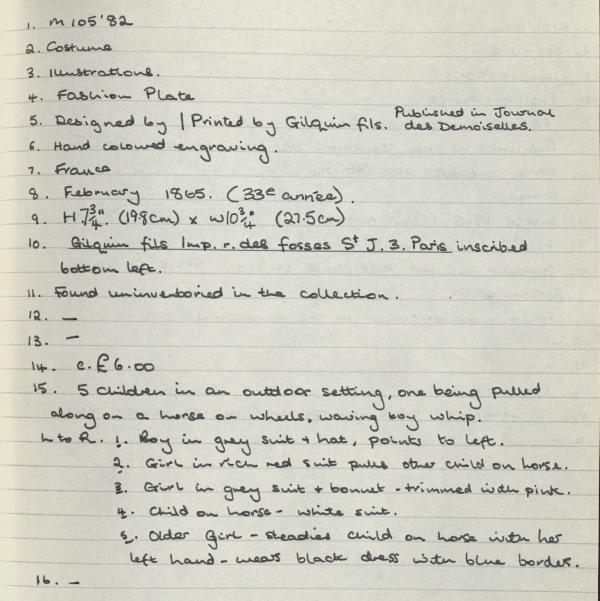 1. M 105'82
2. Costume
3. Illustrations.
4. Fashion Plate
5. Designed by / Printed by Gilquin fils. Published in Journal des Demoiselles.
6. Hand coloured engraving.
7. France
8. February 1865. (33e année).
9. H 7 3/4". (19.8cm) x W10 3/4" (27.5cm)
10. Gilquin fils Imp. r. des fosses St J. 3. Paris inscribed
bottom left.
11. Found uninventoried in the collection.
12. —
13. —
14. c. £6.00
15. 5 children in an outdoor setting, one being pulled
along on a horse on wheels, waving boy whip.
L to R. 1. Boy in grey suit + hat, points to left.
2. Girl in rich red suit pulls other child on horse.
3. Girl in grey suit + bonnet - trimmed with pink.
4. Child on horse - white suit.
5. Older Girl - steadies child on horse with her
left hand - wears black dress with blue border.
16. —